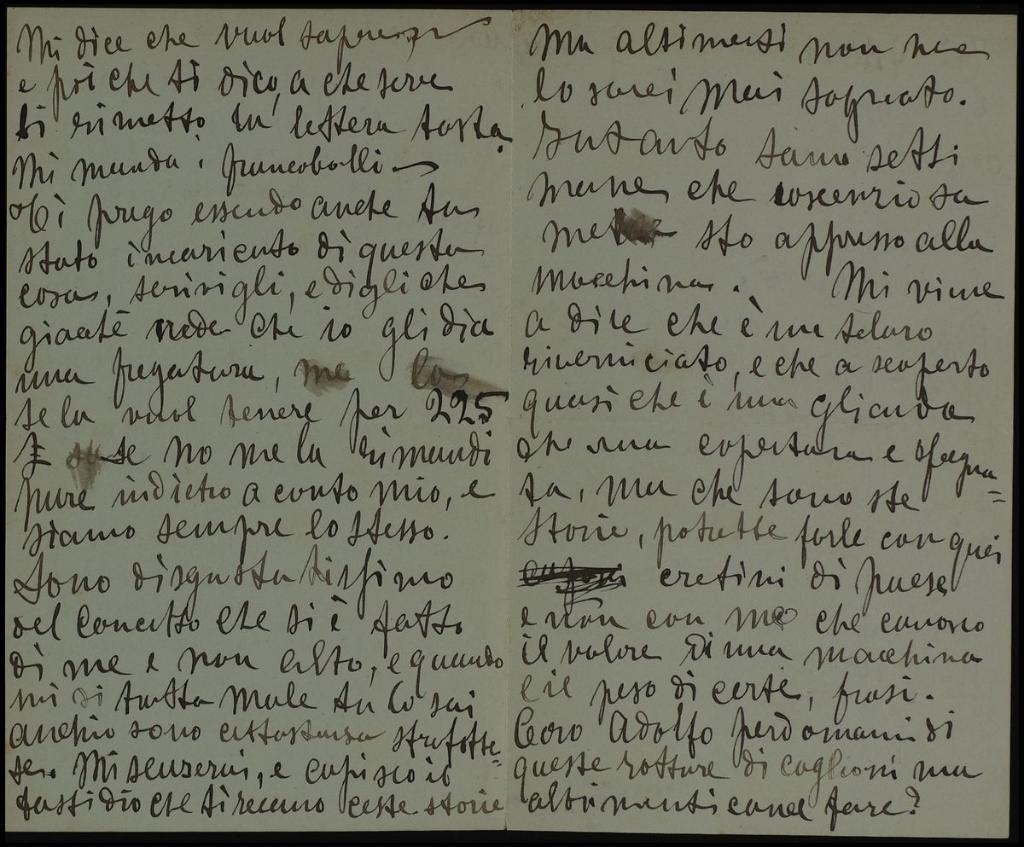 Mi dice che vuol sapere
e poi che ti dico, a che serve
ti rimetto la lettera tosta.
Mi manda i francobolli
Ti prego essendo anche tu
stato incaricato di questa
cosa, scrivigli, e digli che
giacché crede che io gli dia
una fregatura, me la
se la vuol tenere per 225
E se no me la rimandi
pure indietro a conto mio, e
siamo sempre lo stesso.
Sono disgustatissimo
del concetto che si è fatto
di me e non alto, e quando
mi si tratta male tu lo sai
anchio sono abbastanza strafotte=
te. Mi scuserai, e capisco il
fastidio che ti recano ceste storie
Ma altimenti non me
lo sarei mai sognato.
Intanto sono setti
mane che coscenziosa
mente sto appresso alla
macchina. Mi viene
a dire che è un telaro
riverniciato, e che a scoperto
quasi che è una
che una copertura e spegna=
ta, ma che sono ste
storie, potrebbe farle con quei
cretini di paese
e non con me che conosco
il valore di una macchina
e il peso di certe, frasi.
Caro Adolfo perdonami di
queste rotture di coglioni ma
altrimenti cosa fare?